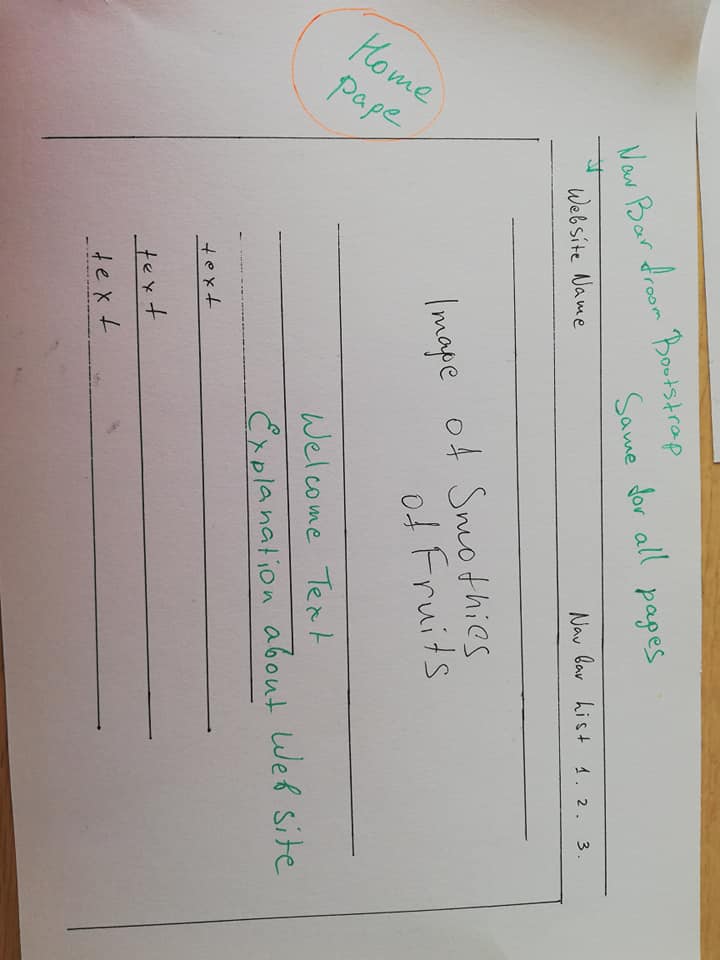 Nav Bar from Bootstrap
Same for all pages
Website Name
Nav Bar List 1. 2. 3.
Image of Smothies
of Fruits
Home
page
Welcome Text
Explanation about Web site
text
text
text